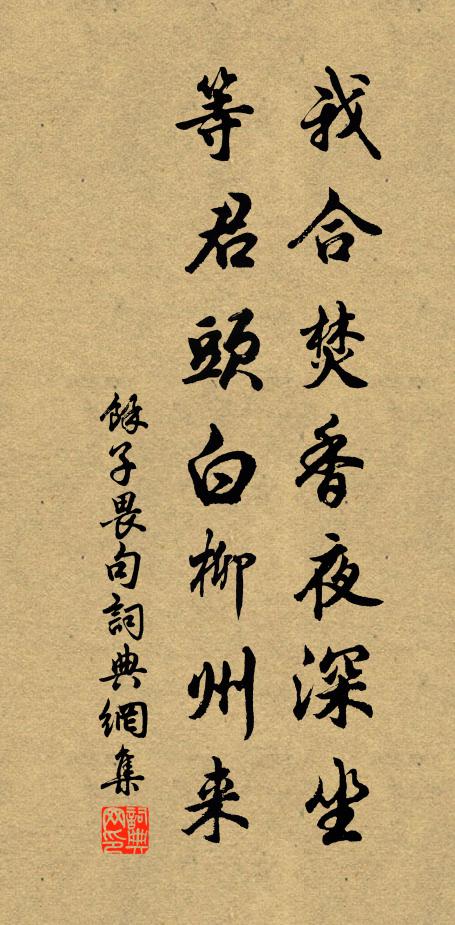 我合焚香夜深坐
等君頭白柳州来
餘子畏句詞典網集
詞典网印